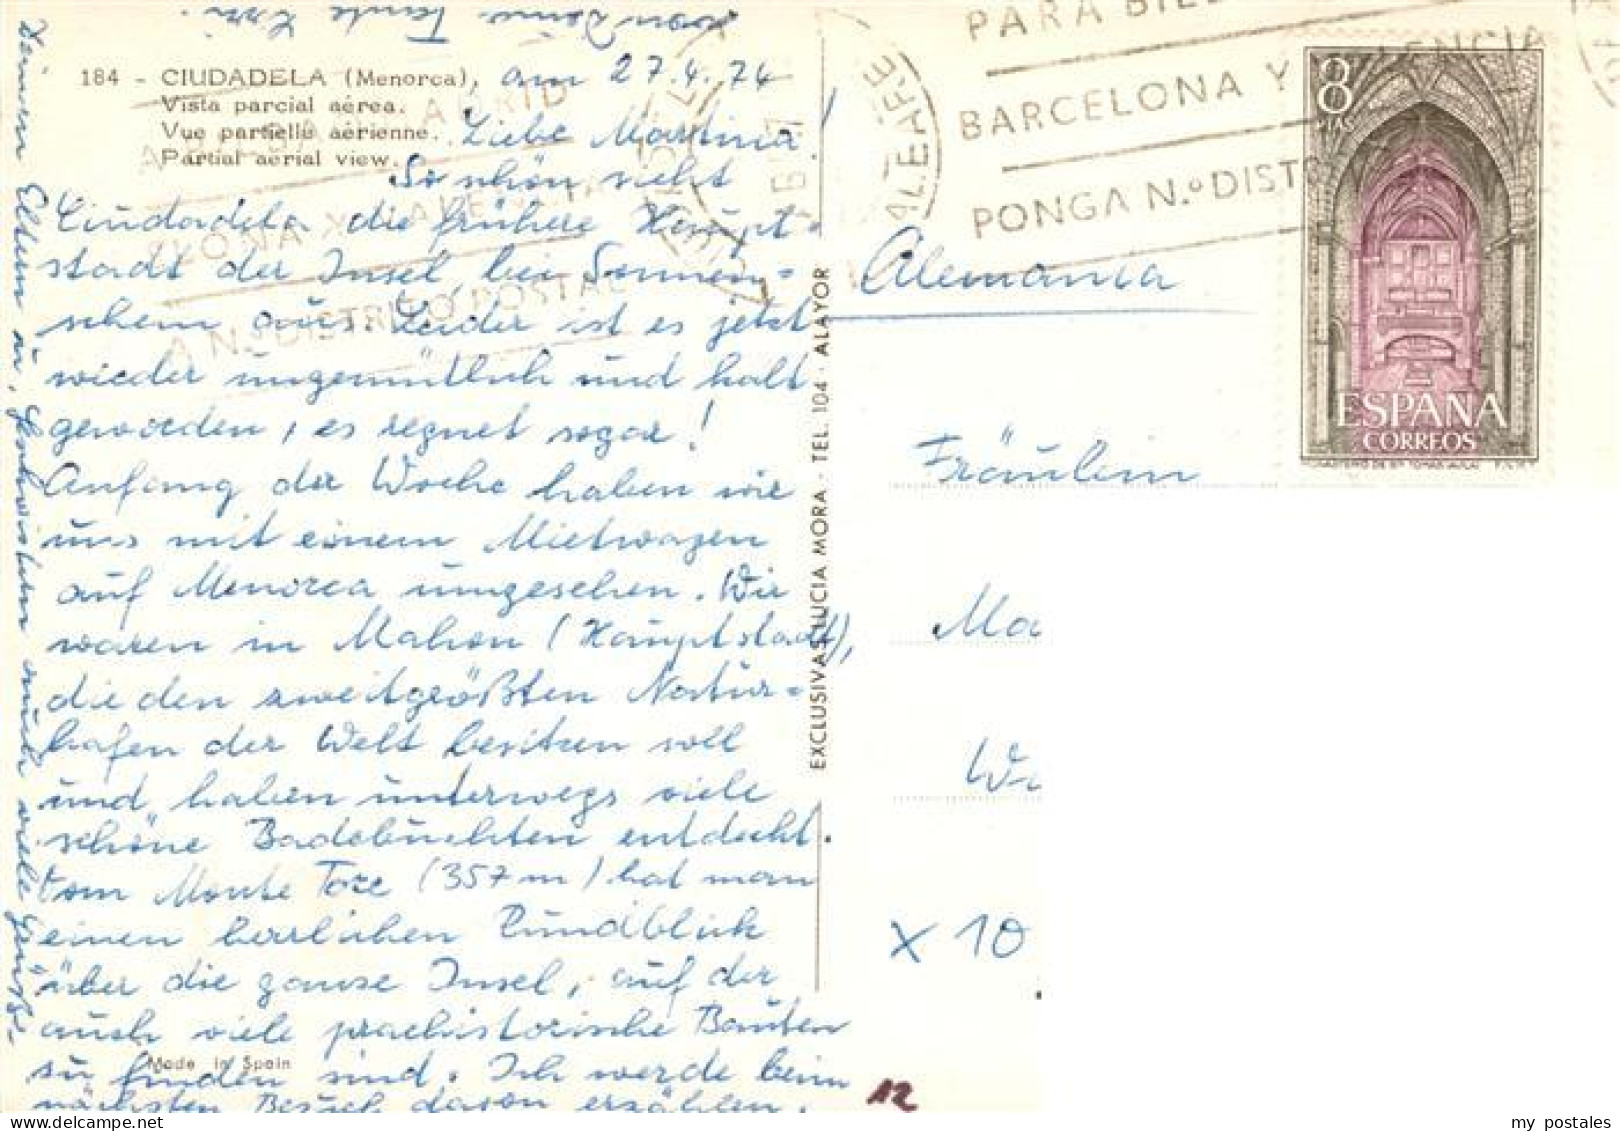 184 - CIUDADELA (Menorca), am 27.4.74
Vista parcial aérea.
Vue partielle aérienne.
Partial aerial view.
Liebe Martina!
So schön sieht
Ciudadela die frühere Haupt-
stadt der Insel, bei Sonnen-
schein aus. Leider ist es jetzt
wieder ungemütlich und kalt
geworden, es regnet sogar!
Anfang der Woche haben wir
uns mit einem Mietwagen
auf Menorca umgesehen. Wir
waren in Mahon (Hauptstadt),
die den zweitgrößten Natur-
hafen der Welt besitzen soll
und haben unterwegs viele
schöne Badebuchten entdeckt.
Vom Monte Toro (357 m) hat man
einen herrlichen Rundblick
über die ganze Insel, auf der
auch viele praehistorische Bauten
zu finden sind. Ich werde beim
nächsten Besuch davon erzählen.
Deinen Eltern u. Geschwistern auch viele Grüße
von Deine Tante
Made in Spain
EXCLUSIVAS LUCIA MORA - TEL. 104 - ALAYOR
PARA
BARCELONA Y VALENCIA
PONGA N.º DIST
8
PTAS
ESPAÑA
CORREOS
Alemania
Fräulein
Ma
x 10
12
my postales